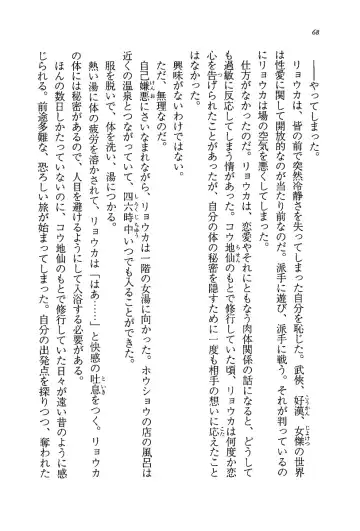 68
――やってしまった。
リョウカは、皆の前で突然冷静さを失ってしまった自分を恥じた。武俠、好漢、女傑の世界
は性愛に関して開放的なのが当たり前なのだ。派手に遊び、派手に戦う。それが判っているの
にリョウカは場の空気を悪くしてしまった。
仕方がなかったのだ。リョウカは、恋愛やそれにともなう肉体関係の話になると、どうして
も過敏に反応してしまう情があった。コウ地仙のもとで修行していた頃、リョウカは何度か恋
心を告げられたことがあったが、自分の体の秘密を隠すために一度も相手の想いに応えたこと
はなかった。
興味がないわけではない。
ただ、無理なのだ。
自己嫌悪にさいなまれながら、リョウカは一階の女湯に向かった。ホウショウの店の風呂は
近くの温泉とつながっていて、四六時中いつでも入ることができた。
服を脱いで、体を洗い、湯につかる。
熱い湯に体の疲労を溶かされて、リョウカは「はあ……」と快感の吐息をつく。リョウカ
の体には秘密があるので、人目を避けるようにして入浴する必要があった。
ほんの数日しかたっていないのに、コウ地仙のもとで修行していた日々が遠い昔のように感
じられる。前途多難な、恐ろしい旅が始まってしまった。自分の出発点を探りつつ、奪われた